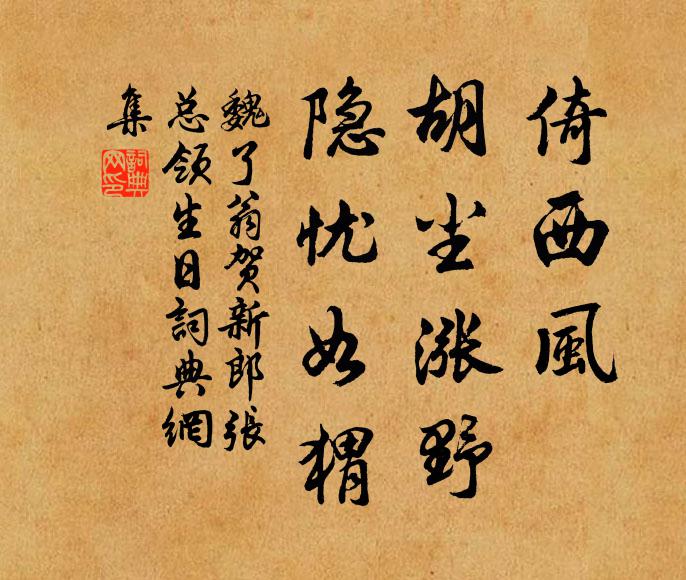 倚西風
胡尘涨野
隐忧如猬
魏了翁贺新郎張
总领生日詞典網
集
詞典
网印